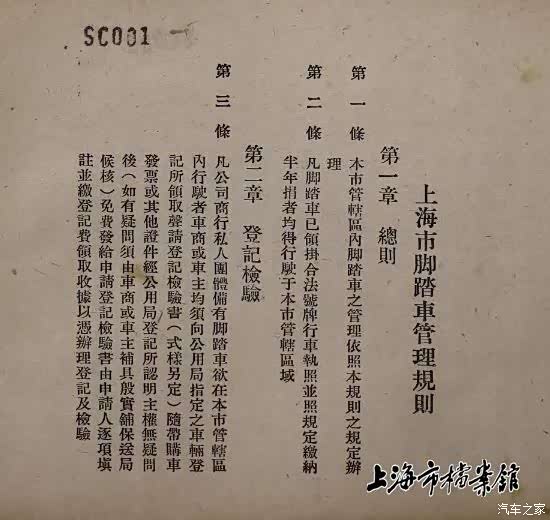 SC001
上海市脚踏車管理規則
第一章 總則
第一條 本市管轄區內脚踏車之管理依照本規則之規定辦
理
第二條 凡脚踏車已領掛合法號牌行車執照並照規定繳納
半年捐者均得行駛于本市管轄區域
第二章 登記檢驗
第三條 凡公司商行私人團體備有脚踏車欲在本市管轄區
內行駛者車商或車主均須向公用局指定之車輛登
記所領取聲請登記檢驗書（式樣另定）隨帶購車
發票或其他證件經公用局登記所認明主權無疑問
後（如有疑問須由車商或車主補具殷實舖保送局
候核）免費發給申請登記檢驗書由申請人逐項塡
註並繳登記費領取收據以憑辦理登記及檢驗
上海市檔案館
汽车之家